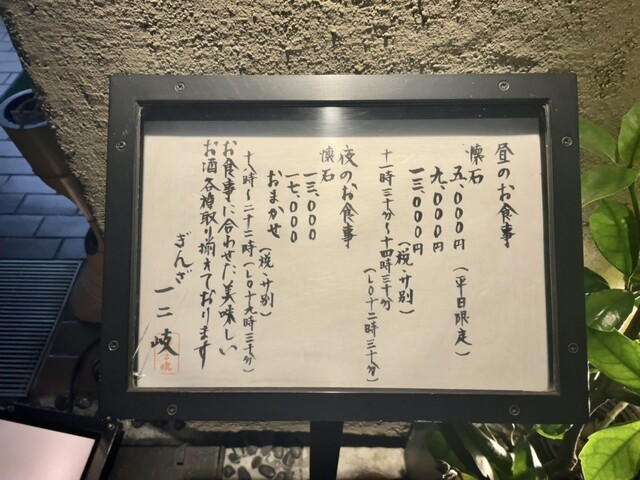 昼のお食事
懐石
五、000円 (平日限定)
九、000円
一三、000円 (税・サ別)
十一時三十分〜十四時三十分
(LO十二時三十分)
夜のお食事
懐石
一三、000
一七、000
おまかせ (税・サ別)
十八時〜二十二時(LO十九時三十分)
お食事に合わせた美味しい
お酒各種取り揃えております
ぎんざ 一二岐